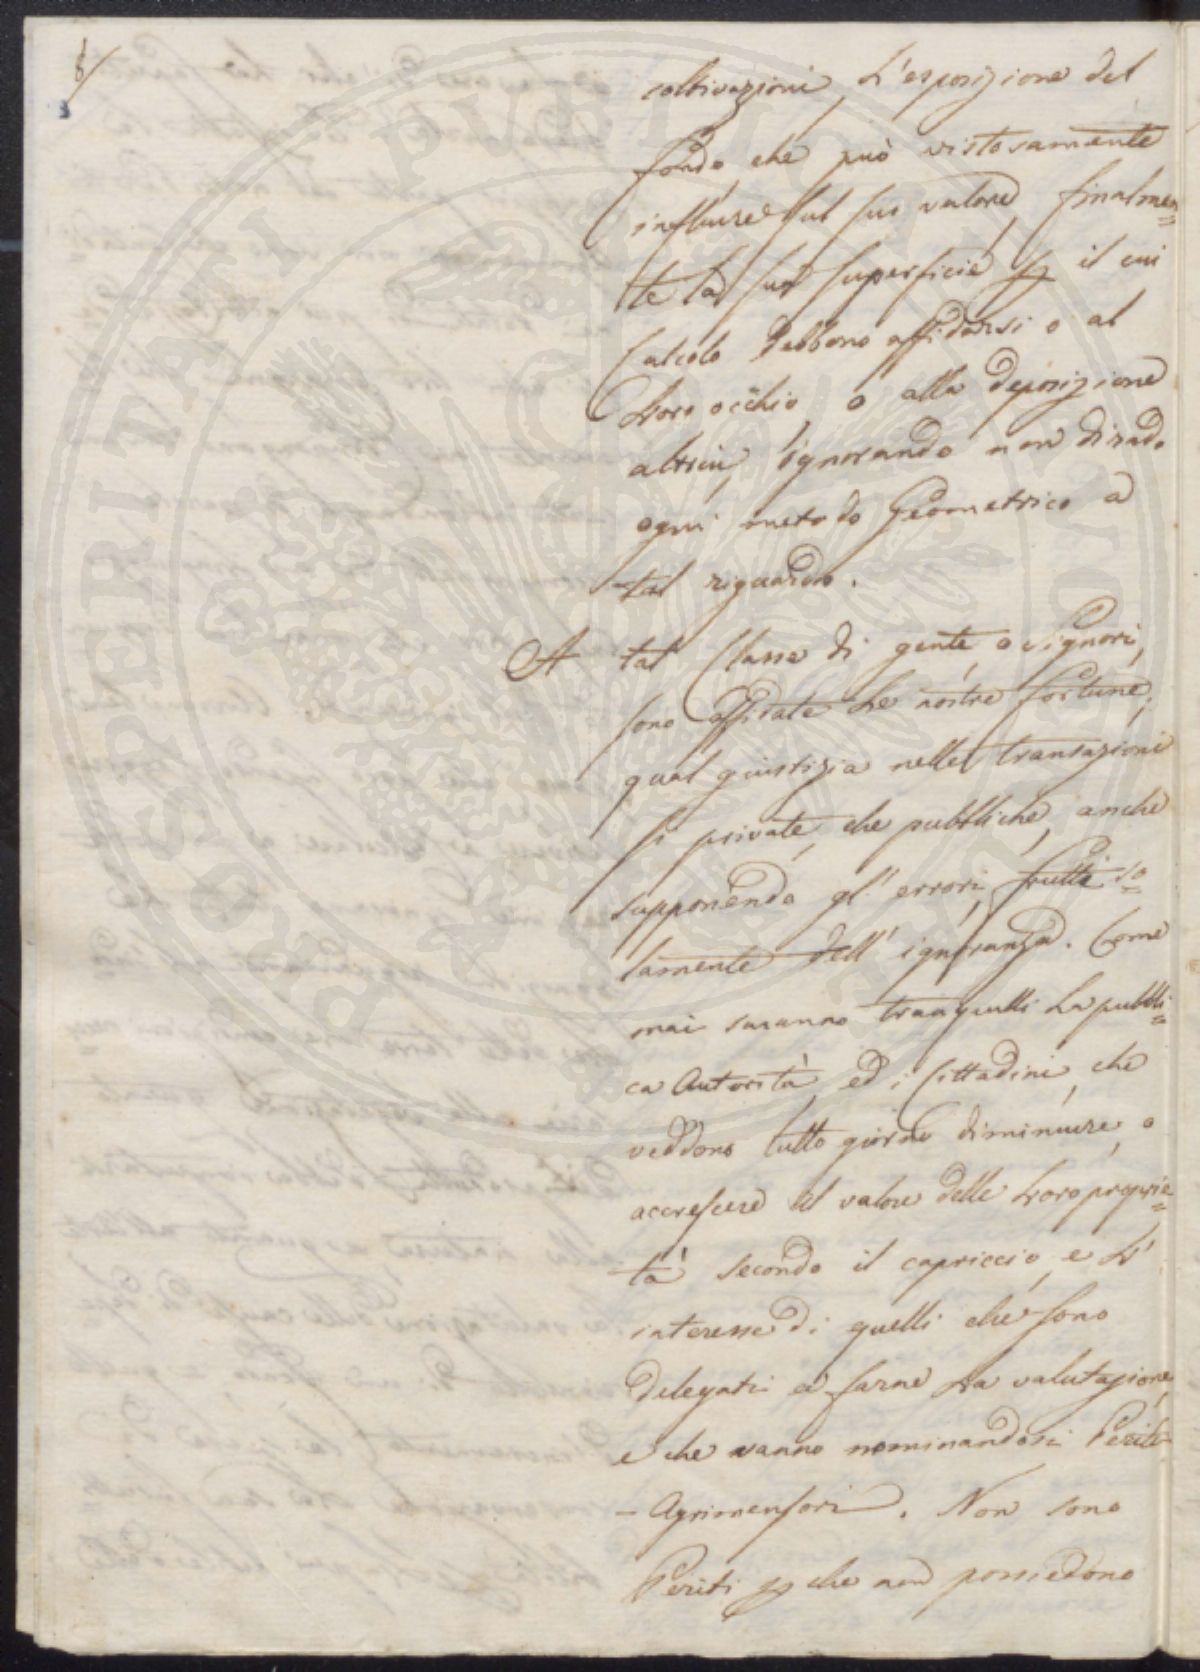 8/
coltivazioni, L'esposizione del
fondo, che può vistosamente
influire sul suo valore, finalmen=
te la sua superficie p il cui
Calcolo debbono affidarsi o al
Loro occhio, o alla deposizione
altrui, ignorando non di rado
ogni metodo Geometrico a
tal riguardo.
A tal Classe di gente, o Signori,
sono affidate Le nostre fortune;
qual giustizia nelle transazioni
si private, che pubbliche, anche
supponendo gl' errori, frutti so=
lamente dell' ignoranza. Come
mai saranno tranquilli La pubbli=
ca Autorità, ed i Cittadini, che
veddono tutto giorno diminuire, o
accrescere il valore delle Loro proprie=
tà secondo il capriccio, e L'
interesse di quelli che sono
delegati a farne La valutazione,
e che vanno nominandosi Periti
- Agrimensori. Non sono
Periti p che non possiedono
PROSPERITATI PUBLICAE